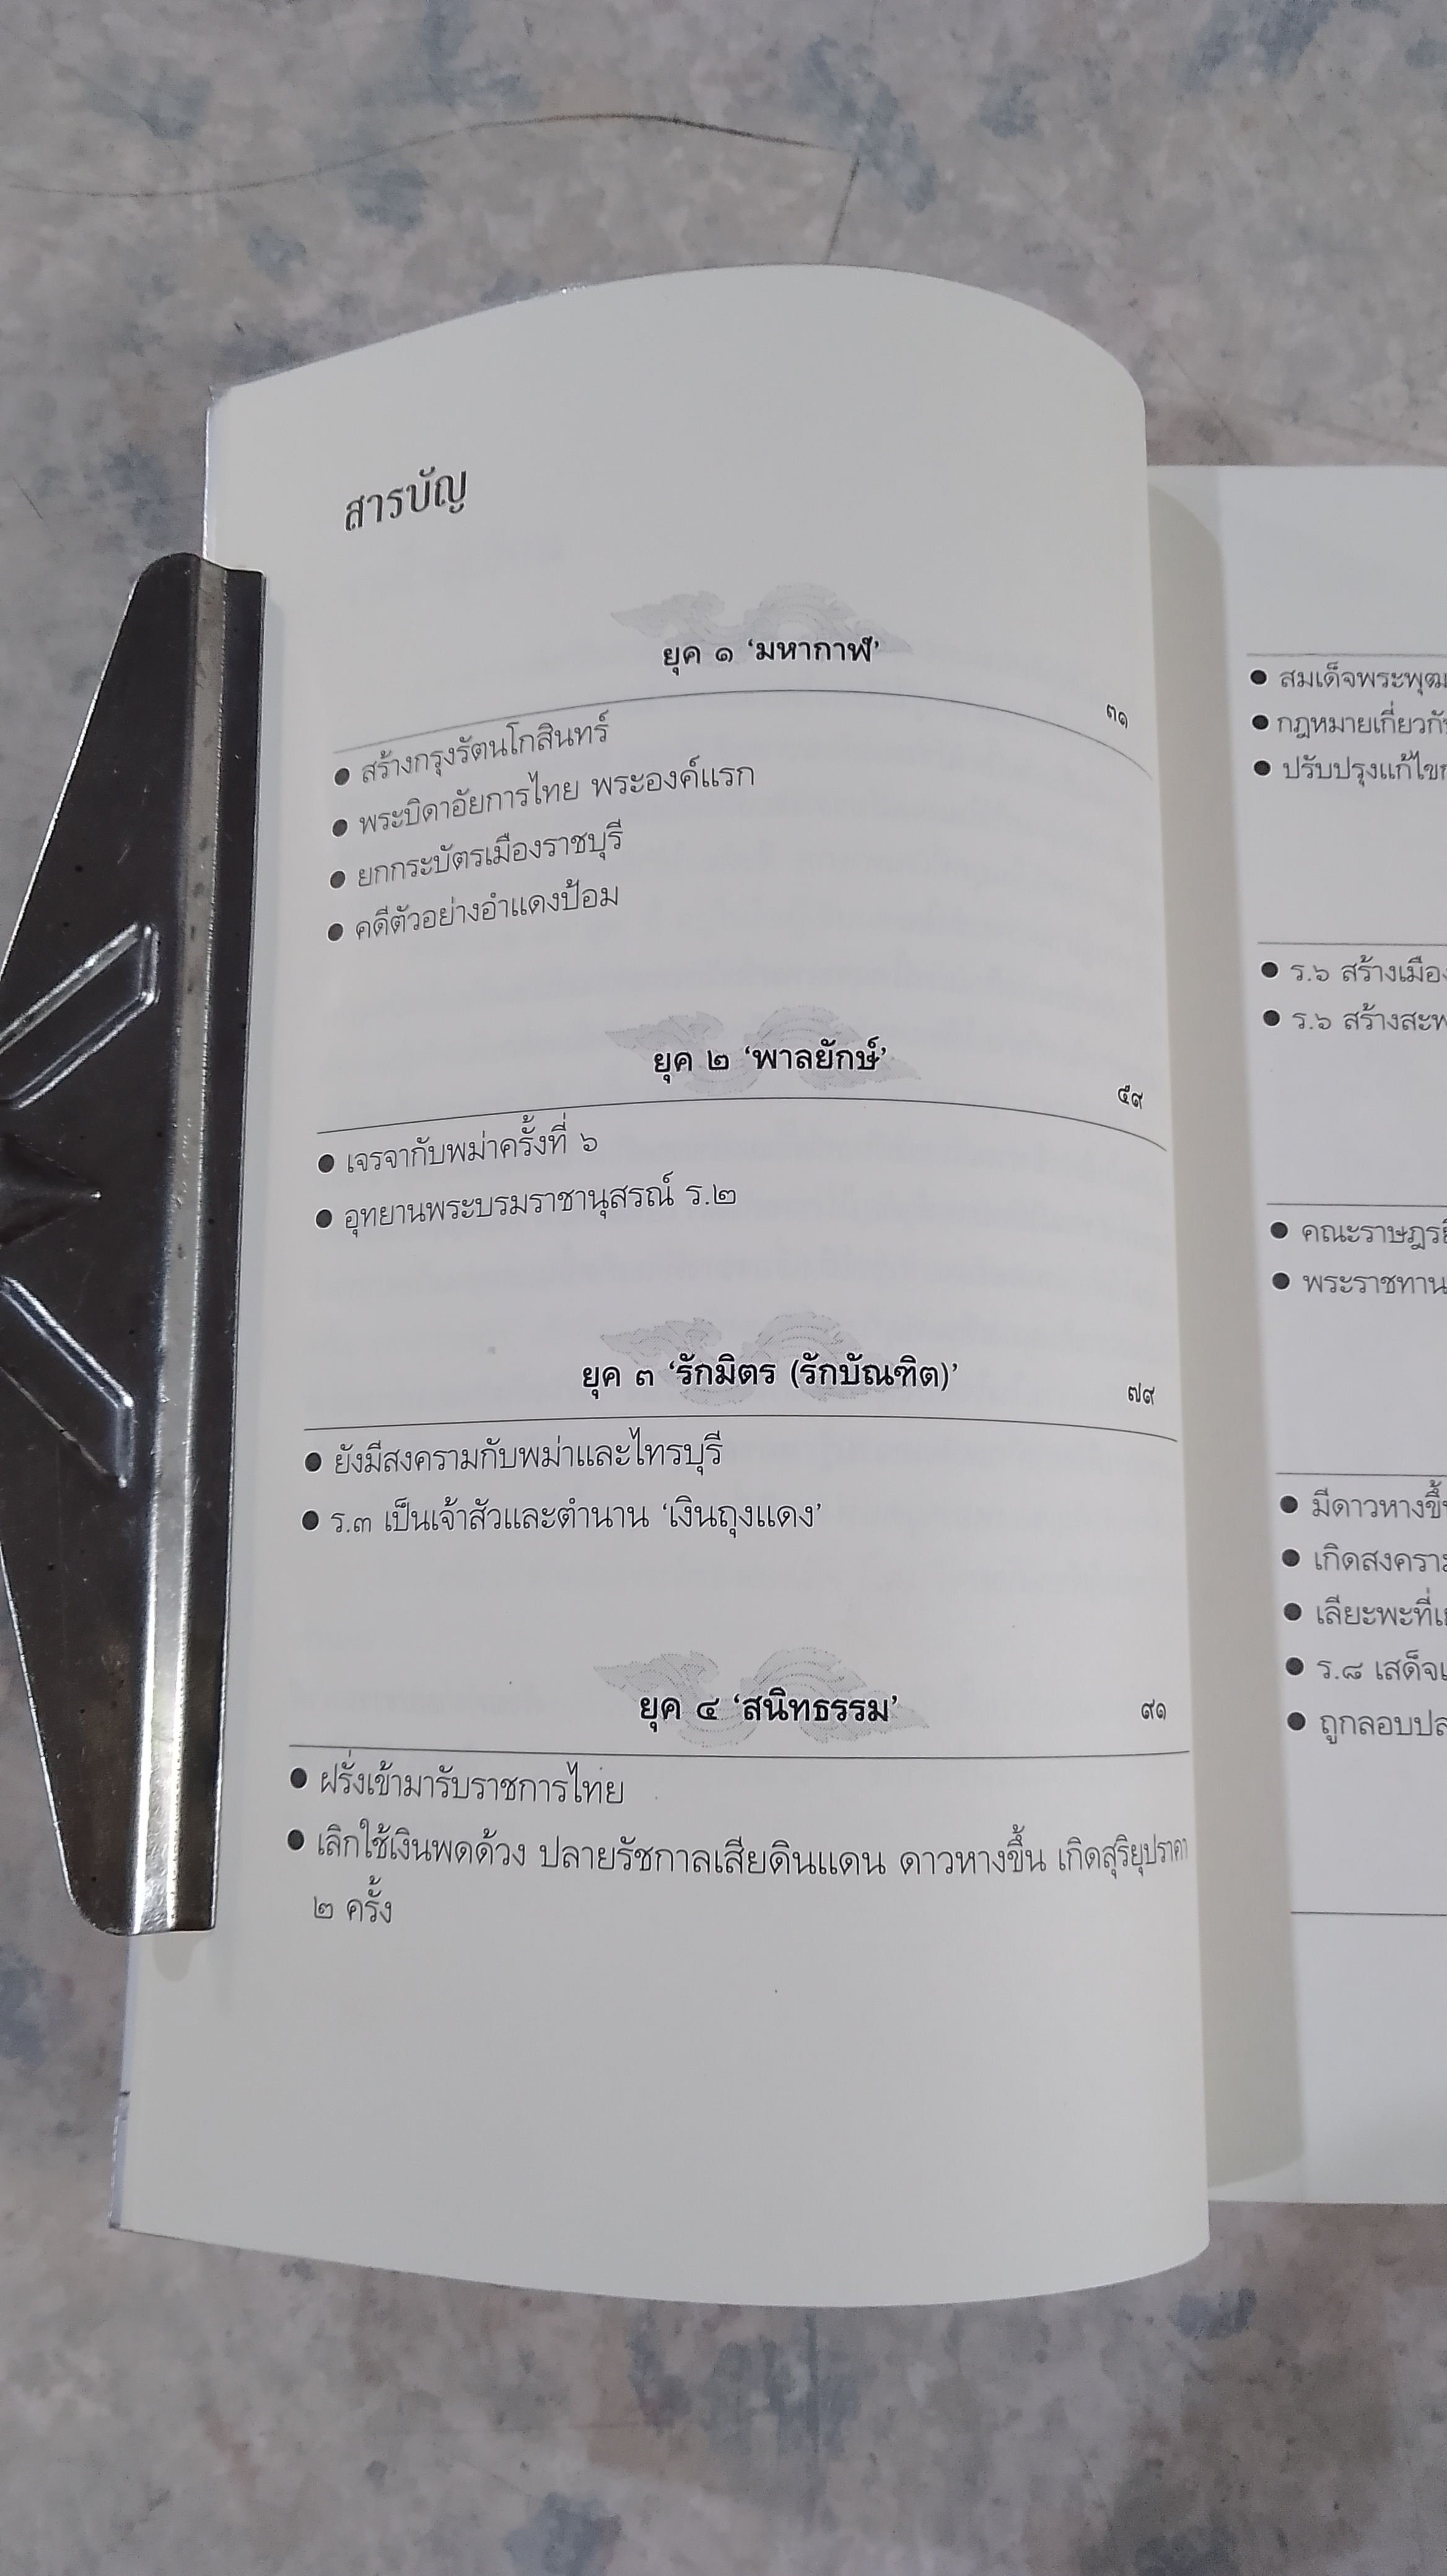 สารบัญ
ยุค ๑ ‘มหากาฬ’
๓๑
● สร้างกรุงรัตนโกสินทร์
● พระบิดาอัยการไทย พระองค์แรก
● ยกกระบัตรเมืองราชบุรี
● คดีตัวอย่างอำแดงป้อม
ยุค ๒ ‘พาลยักษ์’
๕๙
● เจรจากับพม่าครั้งที่ ๖
● อุทยานพระบรมราชานุสรณ์ ร.๒
ยุค ๓ ‘รักมิตร (รักบัณฑิต)’
๗๙
● ยังมีสงครามกับพม่าและไทรบุรี
● ร.๓ เป็นเจ้าสัวและตำนาน ‘เงินถุงแดง’
ยุค ๔ ‘สนิทธรรม’
๙๑
● ฝรั่งเข้ามารับราชการไทย
● เลิกใช้เงินพดด้วง ปลายรัชกาลเสียดินแดน ดาวหางขึ้น เกิดสุริยุปราคา
๒ ครั้ง
● สมเด็จพระพุฒ
● กฎหมายเกี่ยวกับ
● ปรับปรุงแก้ไข
● ร.๖ สร้างเมือง
● ร.๖ สร้างสะพ
● คณะราษฎร
● พระราชทาน
● มีดาวหางขึ้น
● เกิดสงคราม
● เสียะพะที่
● ร.๘ เสด็จ
● ถูกลอบปล